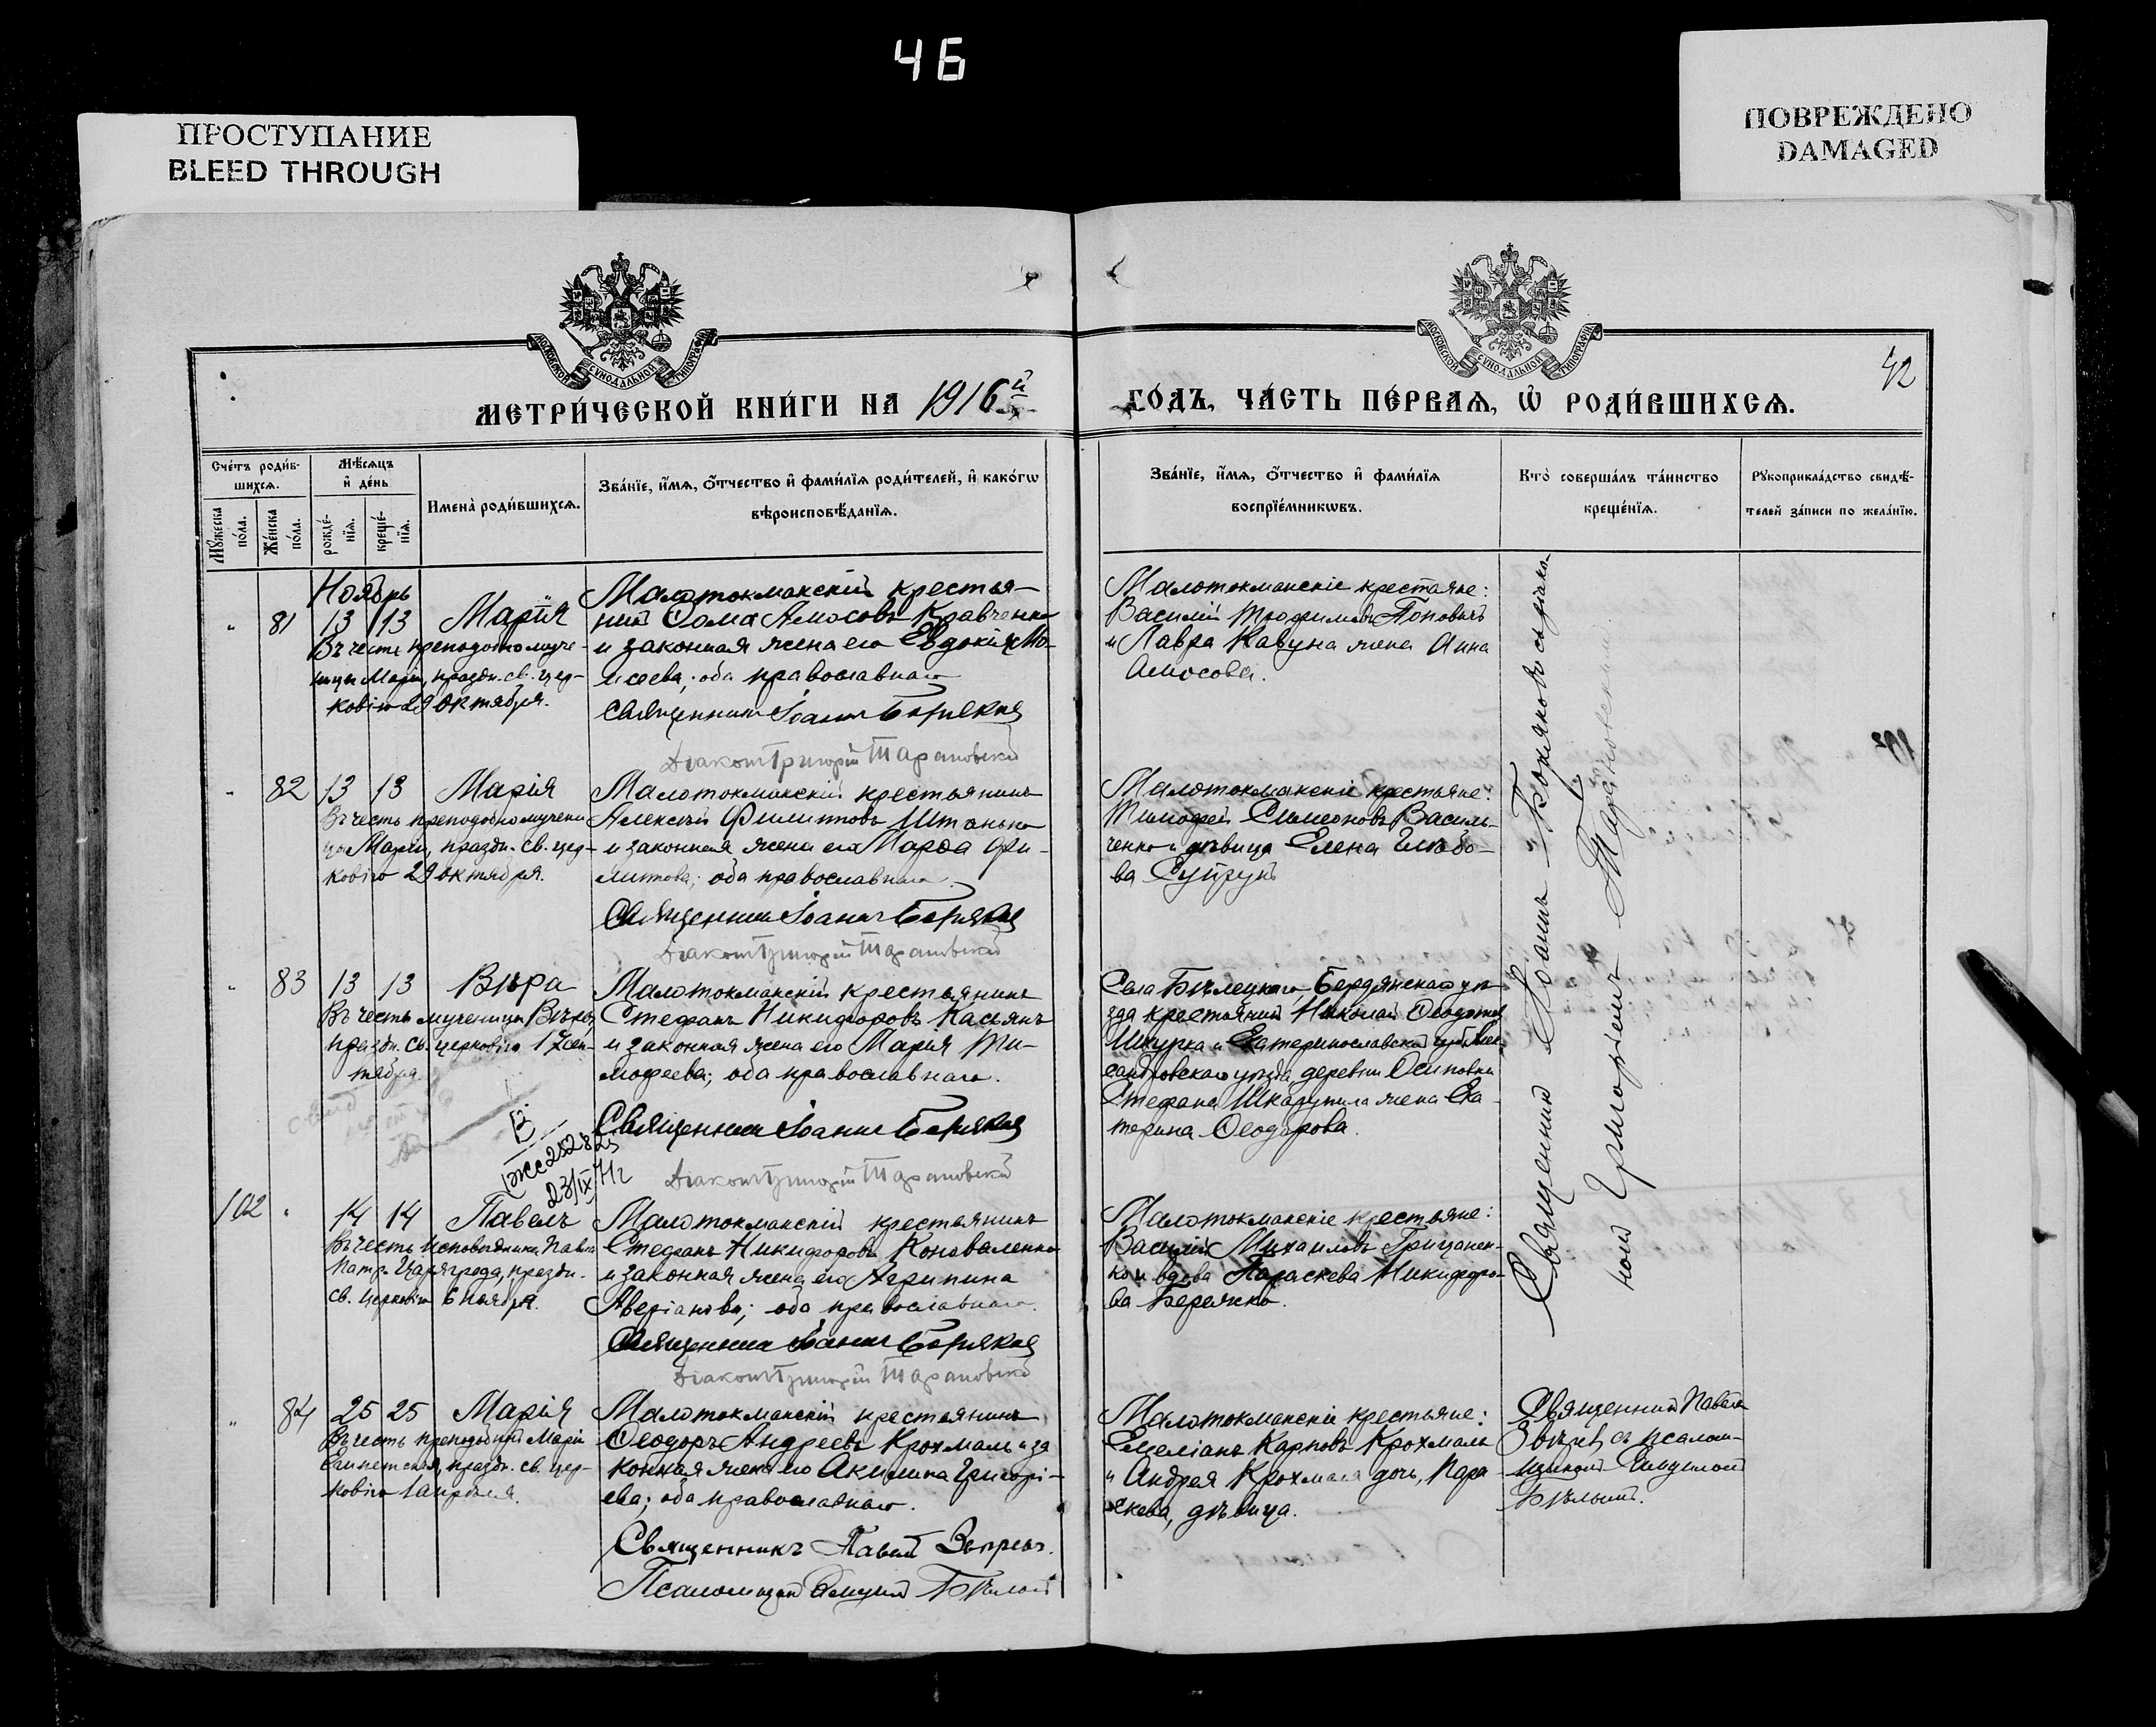 46
ПРОСТУПАНИЕ
BLEED THROUGH
ПОВРЕЖДЕНО
DAMAGED
МОСКОВСКОЙ СѴНОДАЛЬНОЙ ТИПОГРАФІИ
МОСКОВСКОЙ СѴНОДАЛЬНОЙ ТИПОГРАФІИ
42
МЕТРИ́ЧЕСКОЙ КНИ́ГИ НА 1916й
ГО́ДЪ, ЧА́СТЬ ПЕ́РВАѦ, Ѡ҆ РОДИ́ВШИХСѦ.
Сче́тъ роди́в-
шихсѧ.
Мѣ́сѧцъ
и҆ де́нь
Мꙋ́жеска по́ла.
Же́нска по́ла.
рожде́-нїѧ.
креще́-нїѧ.
Имена̀ роди́вшихсѧ.
Зва́нїе, и҆́мѧ, ѻ҆́тчество и҆ фами́лїѧ роди́телей, и҆ како́гѡ
вѣроисповѣ́данїѧ.
Зва́нїе, и҆́мѧ, ѻ҆́тчество и҆ фами́лїѧ
воспрїе́мникѡвъ.
Кто̀ соверша́лъ та́инство
креще́нїѧ.
Рꙋкоприкла́дство свидѣ́-
телей за́писи по жела́нїю.
Ноябрь
81 13 13 Марія
Въ честь преподобномуче-
ницы Маріи, праздн. св. цер-
ковію 29 октября.
Малотокмакскій крестья-
нин Ѳома Амосовъ Кравченко
и законная жена его Евдокія Мо-
исеева; оба православнаго
Священникъ Іоаннъ Боряковъ
Діаконъ Григорій Тарановскій
Малотокмакскіе крестьяне:
Василій Трофимовъ Поповичъ
и Лавра Кавуна жена Анна
Амосова.
82 13 13 Марія
Въ честь преподобномучени
цы Маріи, праздн. св. цер-
ковію 29 октября.
Малотокмакскій крестьянинъ
Алексѣй Филипповъ Штанько
и законная жена его Марѳа Фи-
липпова; оба православнаго.
Священникъ Іоаннъ Боряковъ
Діаконъ Григорій Тарановскій
Малотокмакскіе крестьяне:
Тимофей Симеоновъ Василь-
ченко и дѣвица Елена Глѣбо-
ва Супрунъ
83 13 13 Вѣра
Въ честь мученицы Вѣры,
праздн. св. церковію 17 сен-
тября.
Малотокмакскій крестьянинъ
Стефанъ Никифоровъ Касьянъ
и законная жена его Марія Ти-
мофеева; оба православнаго.
Священникъ Іоаннъ Боряковъ
Діаконъ Григорій Тарановскій
23/IX 71г
Села Бѣлецкаго, Бердянскаго уѣ-
зда крестьянин Николай Ѳеодотов
Шкурка и Екатеринославской губ. Алек
сандровскаго уѣзда деревни Осиповки
Стефана Шкарупила жена Ека-
терина Ѳеодорова.
102 14 14 Павелъ
Въ честь исповѣдника Павла
патр. Царяграда, праздн.
св. церковію 6 ноября.
Малотокмакскій крестьянинъ
Стефанъ Никифоровъ Коноваленко
и законная жена его Агрипина
Аверіанова; оба православнаго.
Священникъ Іоаннъ Боряковъ
Діаконъ Григорій Тарановскій
Малотокмакскіе крестьяне:
Василій Михаиловъ Грицанен-
ко и вдова Параскева Никифоро-
ва Бережко.
Священникъ Іоаннъ Боряковъ съ діако-
ном Григоріемъ Тарановскимъ.
84 25 25 Марія
Въ честь преподобной Маріи
Египетской, праздн. св. цер-
ковію 1 апрѣля.
Малотокмакскій крестьянинъ
Ѳеодоръ Андреевъ Крохмаль и за
конная жена его Акилина Григорі-
ева; оба православнаго.
Священникъ Павелъ Звѣревъ.
Псаломщикъ Бѣлый
Малотокмакскіе крестьяне:
Емеліанъ Карповъ Крохмаль
и Андрея Крохмаля дочь, Пара
скева, дѣвица.
Священник Павелъ
Звѣрев съ псалом-
щикомъ
Бѣлымъ.